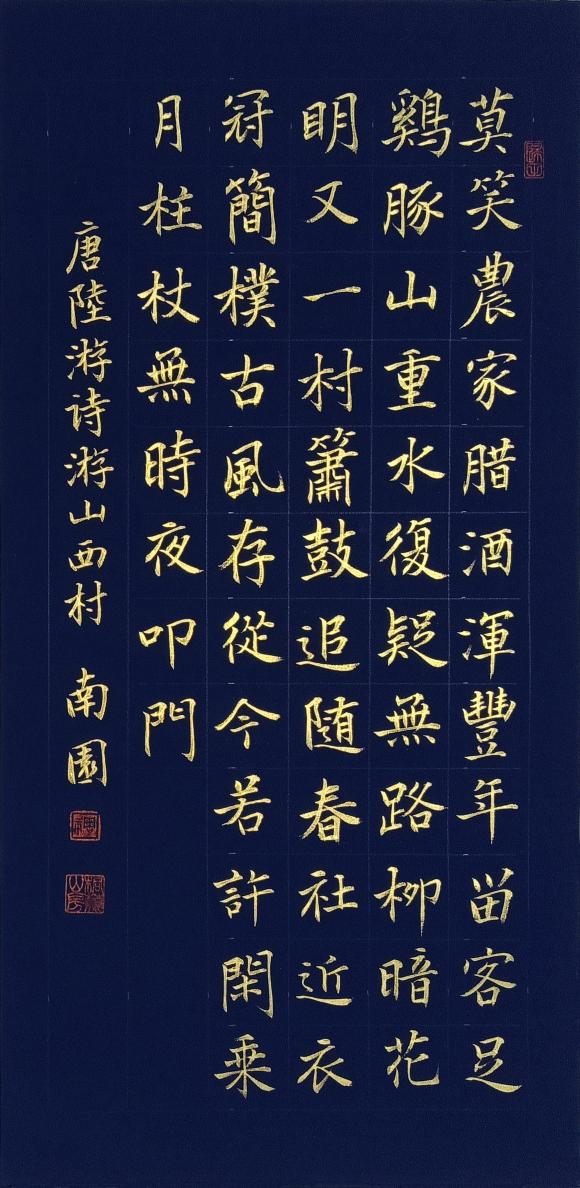 莫笑農家腊酒渾豐年畄客足
鷄豚山重水復疑無路柳暗花
明又一村簫鼓追随春社近衣
冠簡樸古風存從今若許閑乗
月柱杖無時夜叩門
唐陸游诗游山西村 南園